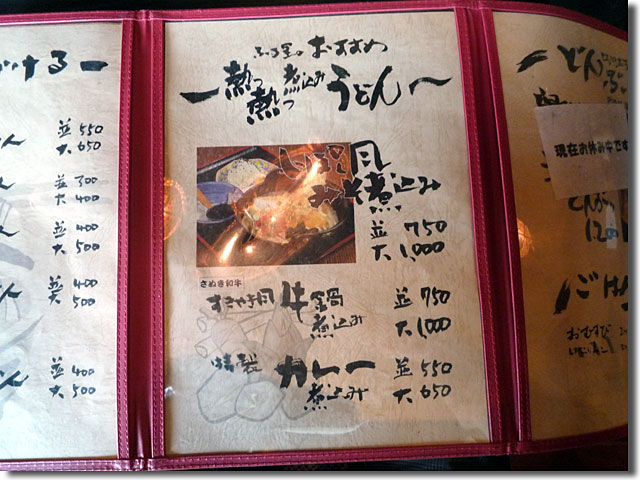 ける
ん 並 550
大 650
並 300
大 400
ん 並 400
大 500
ん 並 400
大 500
ん 並 400
大 500
おすすめ
熱っ熱っ煮込みうどん
風
みそ煮込み
並 750
大 1,000
さぬき和牛
すきやき風 牛鍋煮込み 並 750
大 1,000
特製 カレー煮込み 並 550
大 650
どん
現在お休み中です
ごは
おむすび